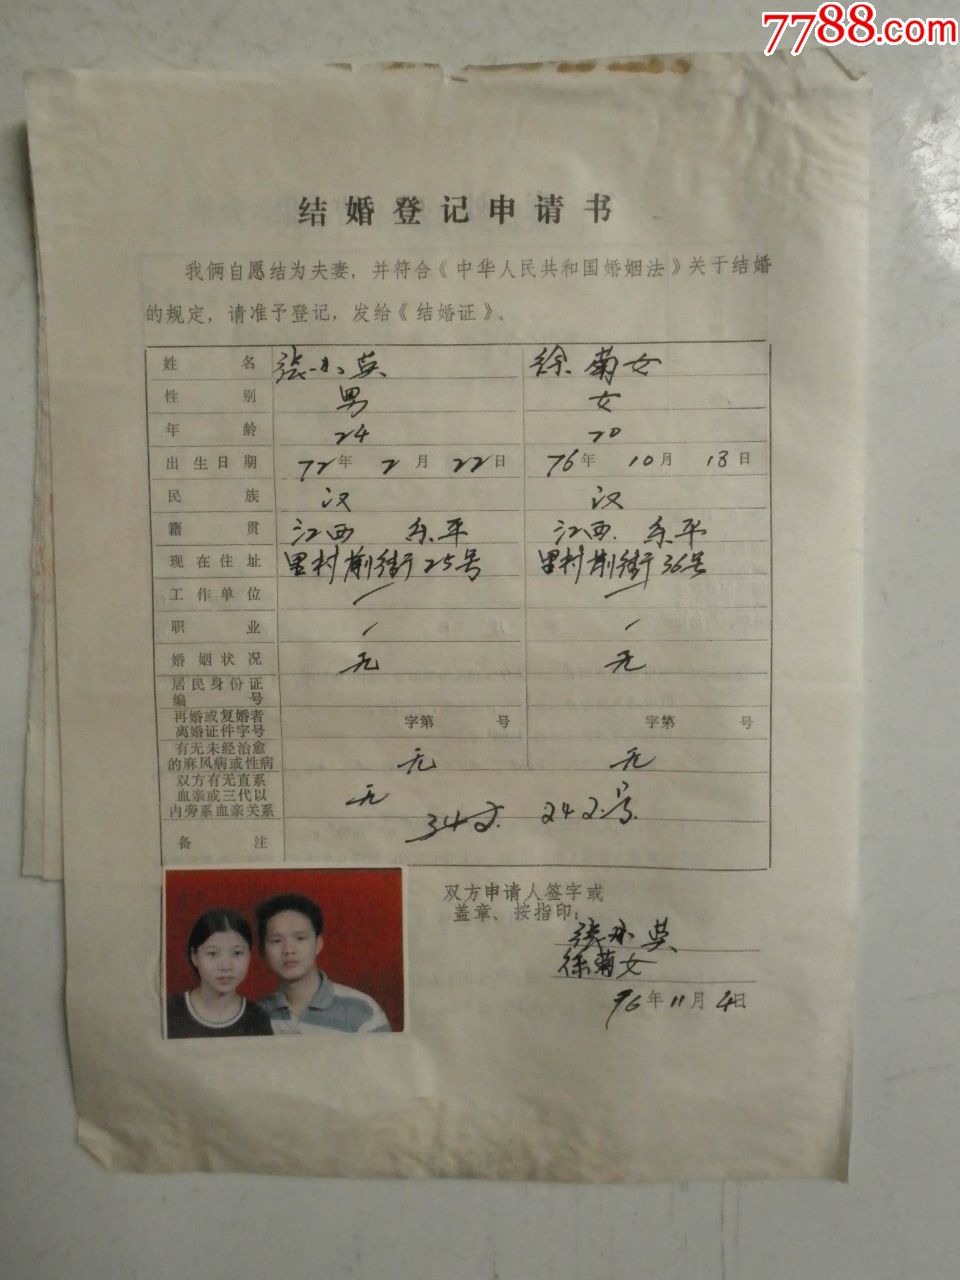 7788.com
结婚登记申请书
我俩自愿结为夫妻，并符合《中华人民共和国婚姻法》关于结婚
的规定，请准予登记，发给《结婚证》。
姓 名 张小英 徐菊女
性 别 男 女
年 龄 24 20
出生日期 72年 2月 22日 76年 10月 18日
民 族 汉 汉
籍 贯 江西 乐平 江西 乐平
现在住址 里村前街25号 里村前街36号
工作单位 / /
职 业 / /
婚姻状况 无 无
居民身份证
编 号
再婚或复婚者
离婚证件字号 字第 号 字第 号
有无未经治愈
的麻风病或性病 无 无
双方有无直系
血亲或三代以
内旁系血亲关系 无
备 注
双方申请人签字或
盖章、按指印：
张小英
徐菊女
96年11月4日